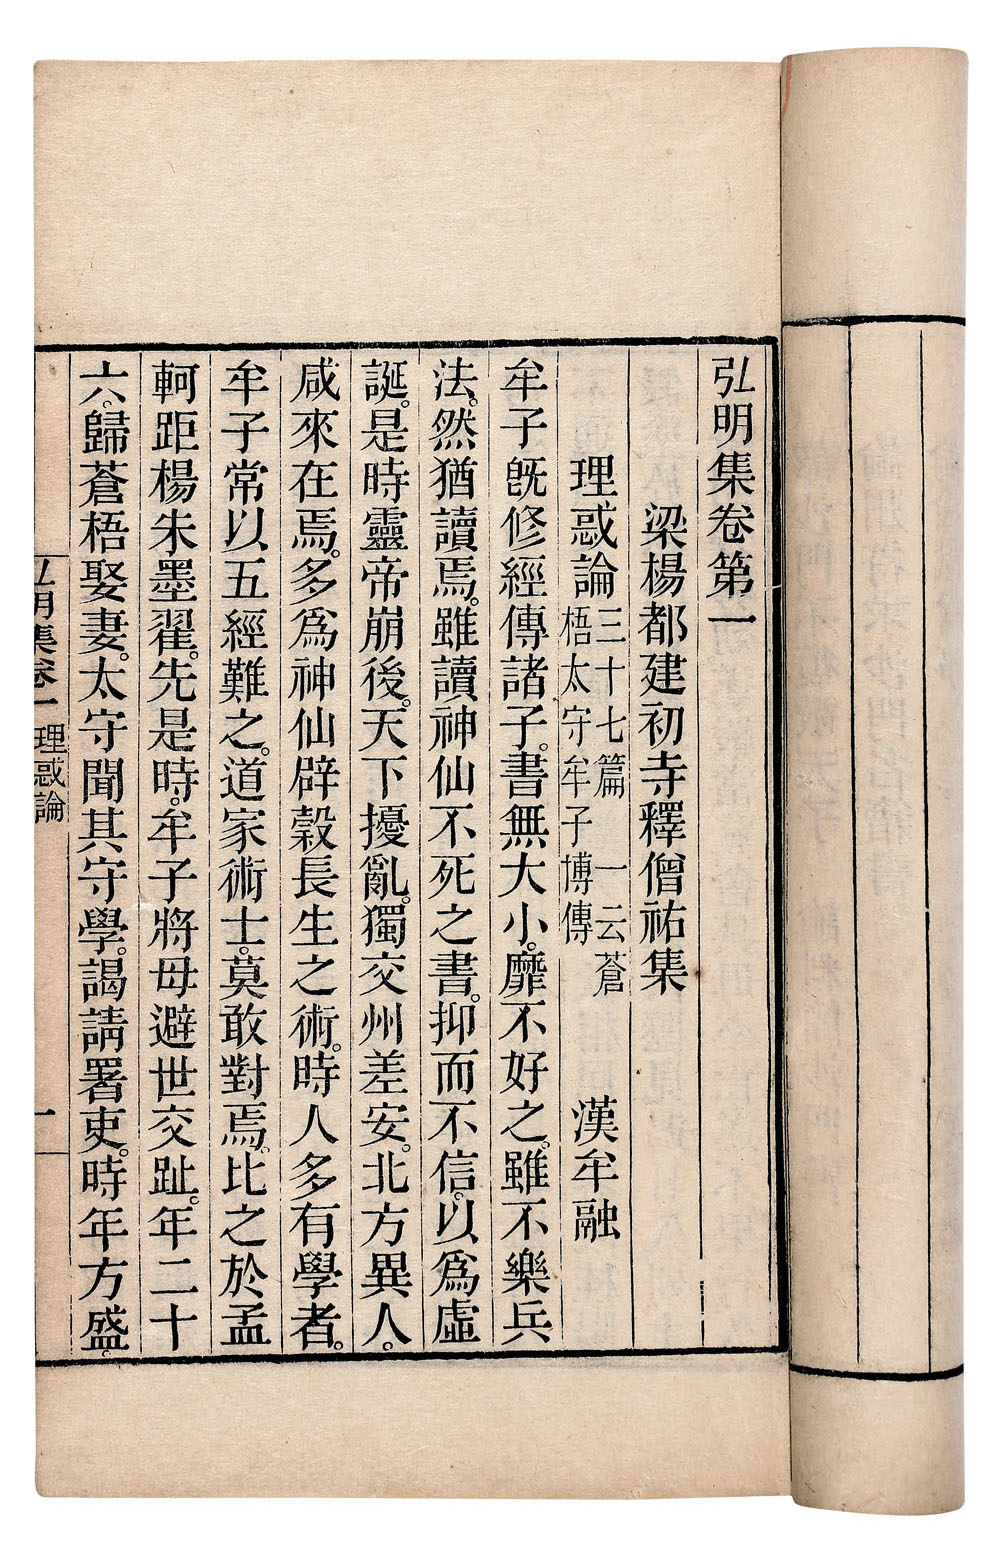 弘明集卷第一
梁楊都建初寺釋僧祐集
理惑論三十七篇 一云蒼梧太守牟子博傳 漢牟融
牟子旣修經傳諸子。書無大小。靡不好之。雖不樂兵
法。然猶讀焉。雖讀神仙不死之書。抑而不信。以爲虛
誕。是時靈帝崩後。天下擾亂。獨交州差安。北方異人。
咸來在焉。多爲神仙辟穀長生之術。時人多有學者。
牟子常以五經難之。道家術士。莫敢對焉。比之於孟
軻距楊朱墨翟。先是時。牟子將母避世交趾。年二十
六。歸蒼梧娶妻。太守聞其守學。謁請署吏。時年方盛。
弘明集卷一 理惑論 一